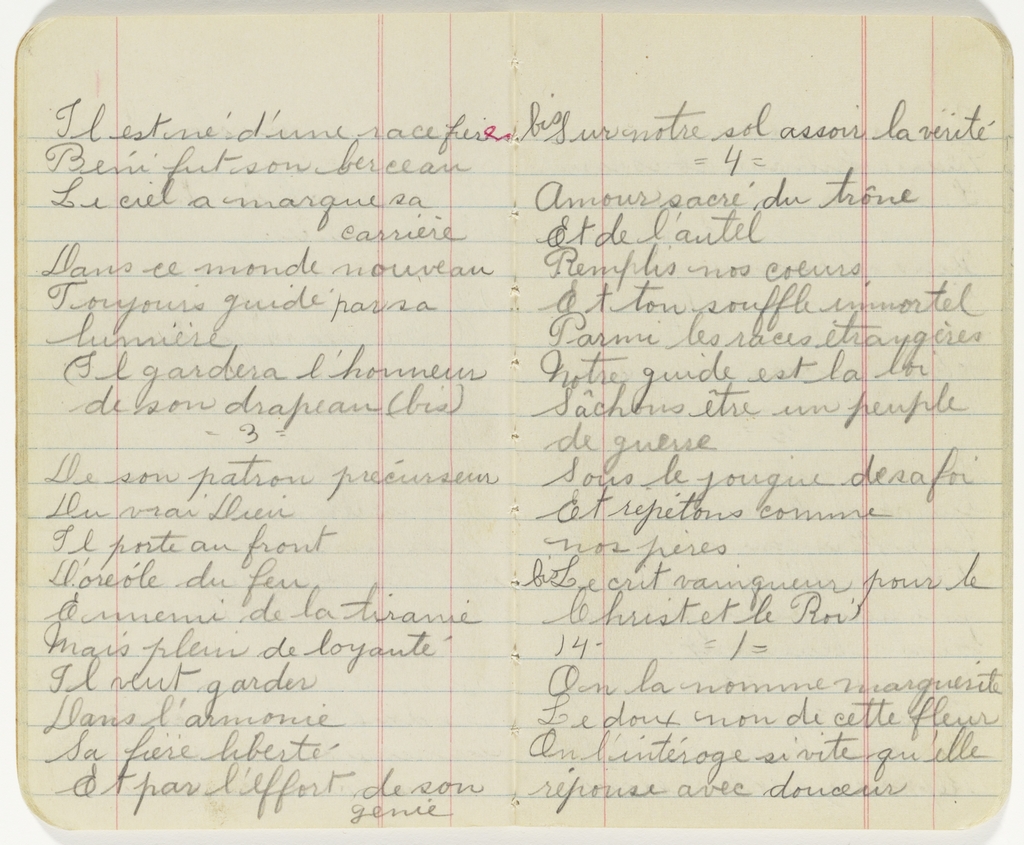 Il est né d'une race fière
Beni fut son berceau
Le ciel a marque sa
carrière
Dans ce monde nouveau
Toujours guidé par sa
lumière
(Il gardera l'honneur
de son drapeau (bis)
- 3 =
De son patron précurseur
Du vrai Dieu
Il porte au front
L'oréole du feu
Ennemi de la tiranie
Mais plein de loyauté
Il veut garder
Dans l'armonie
Sa fière liberté
Et par l'éffort de son
genie
bis Sur notre sol assoir la vérité
= 4 =
Amour sacré du trône
Et de l'autel
Remplis nos coeurs
Et ton souffle immortel
Parmi les races étraygères
Notre guide est la loi
Sâchons être un peuple
de guerre
Sous le jougue de sa foi
Et répétons comme
nos pères
bis Le crit vainqueur pour le
Christ et le Roi)
14- = 1 =
On la nomme marguerite
Le doux non de cette fleur
On l'intéroge si vite qu'elle
réponse avec douceur